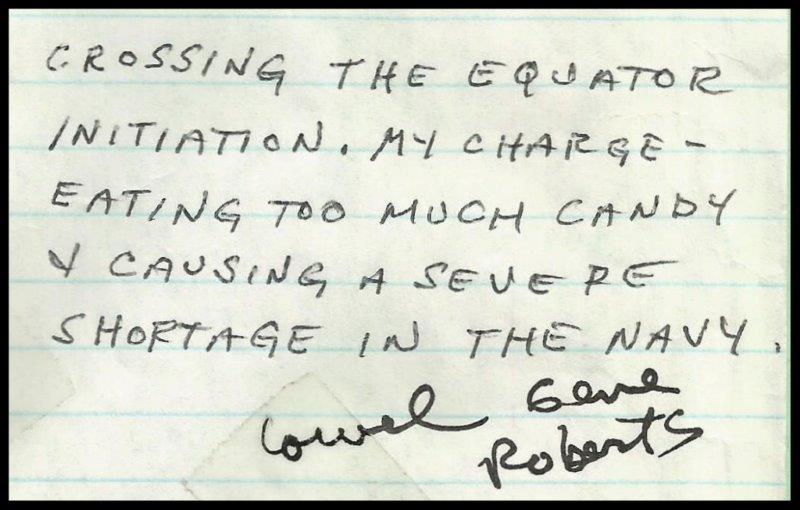 CROSSING THE EQUATOR
INITIATION. MY CHARGE -
EATING TOO MUCH CANDY
& CAUSING A SEVERE
SHORTAGE IN THE NAVY.
Lowel Gene
Roberts